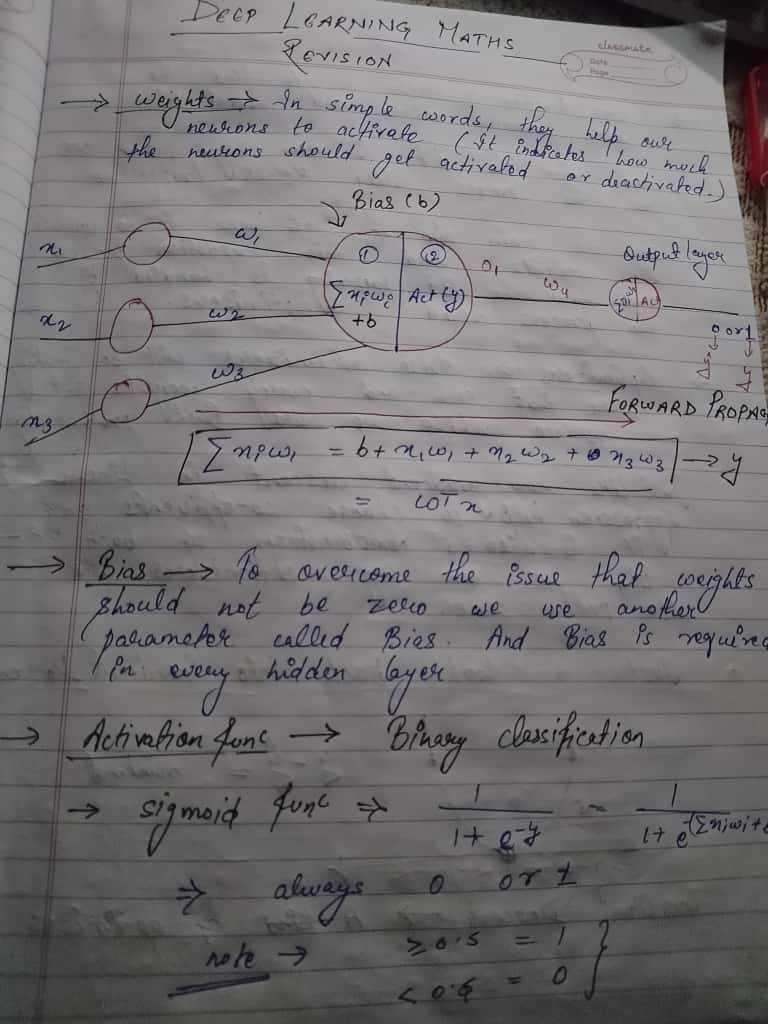 DEEP LEARNING MATHS
REVISION
classmate
Date
Page
→ weights → In simple words, they help our
neurons to activate (It indicates how much
the neurons should get activated or deactivated.)
Bias (b)
x1
w1
① ②
O1
w4
Output layer
x2
w2
Σxiwi
+b
Act(y)
Act
0 or 1
ŷ ŷ
x3
w3
FORWARD PROPAG
Σxiw1 = b + x1w1 + x2w2 + x3w3 → y
= wTx
→ Bias → To overcome the issue that weights
should not be zero we use another
parameter called Bias. And Bias is require
in every hidden layer
→ Activation func → Binary classification
→ sigmoid func ⇒ 1 / 1 + e^-y = 1 / 1 + e^-(Σxiwi+
⇒ always 0 or 1
note → ≥ 0.5 = 1 }
< 0.5 = 0